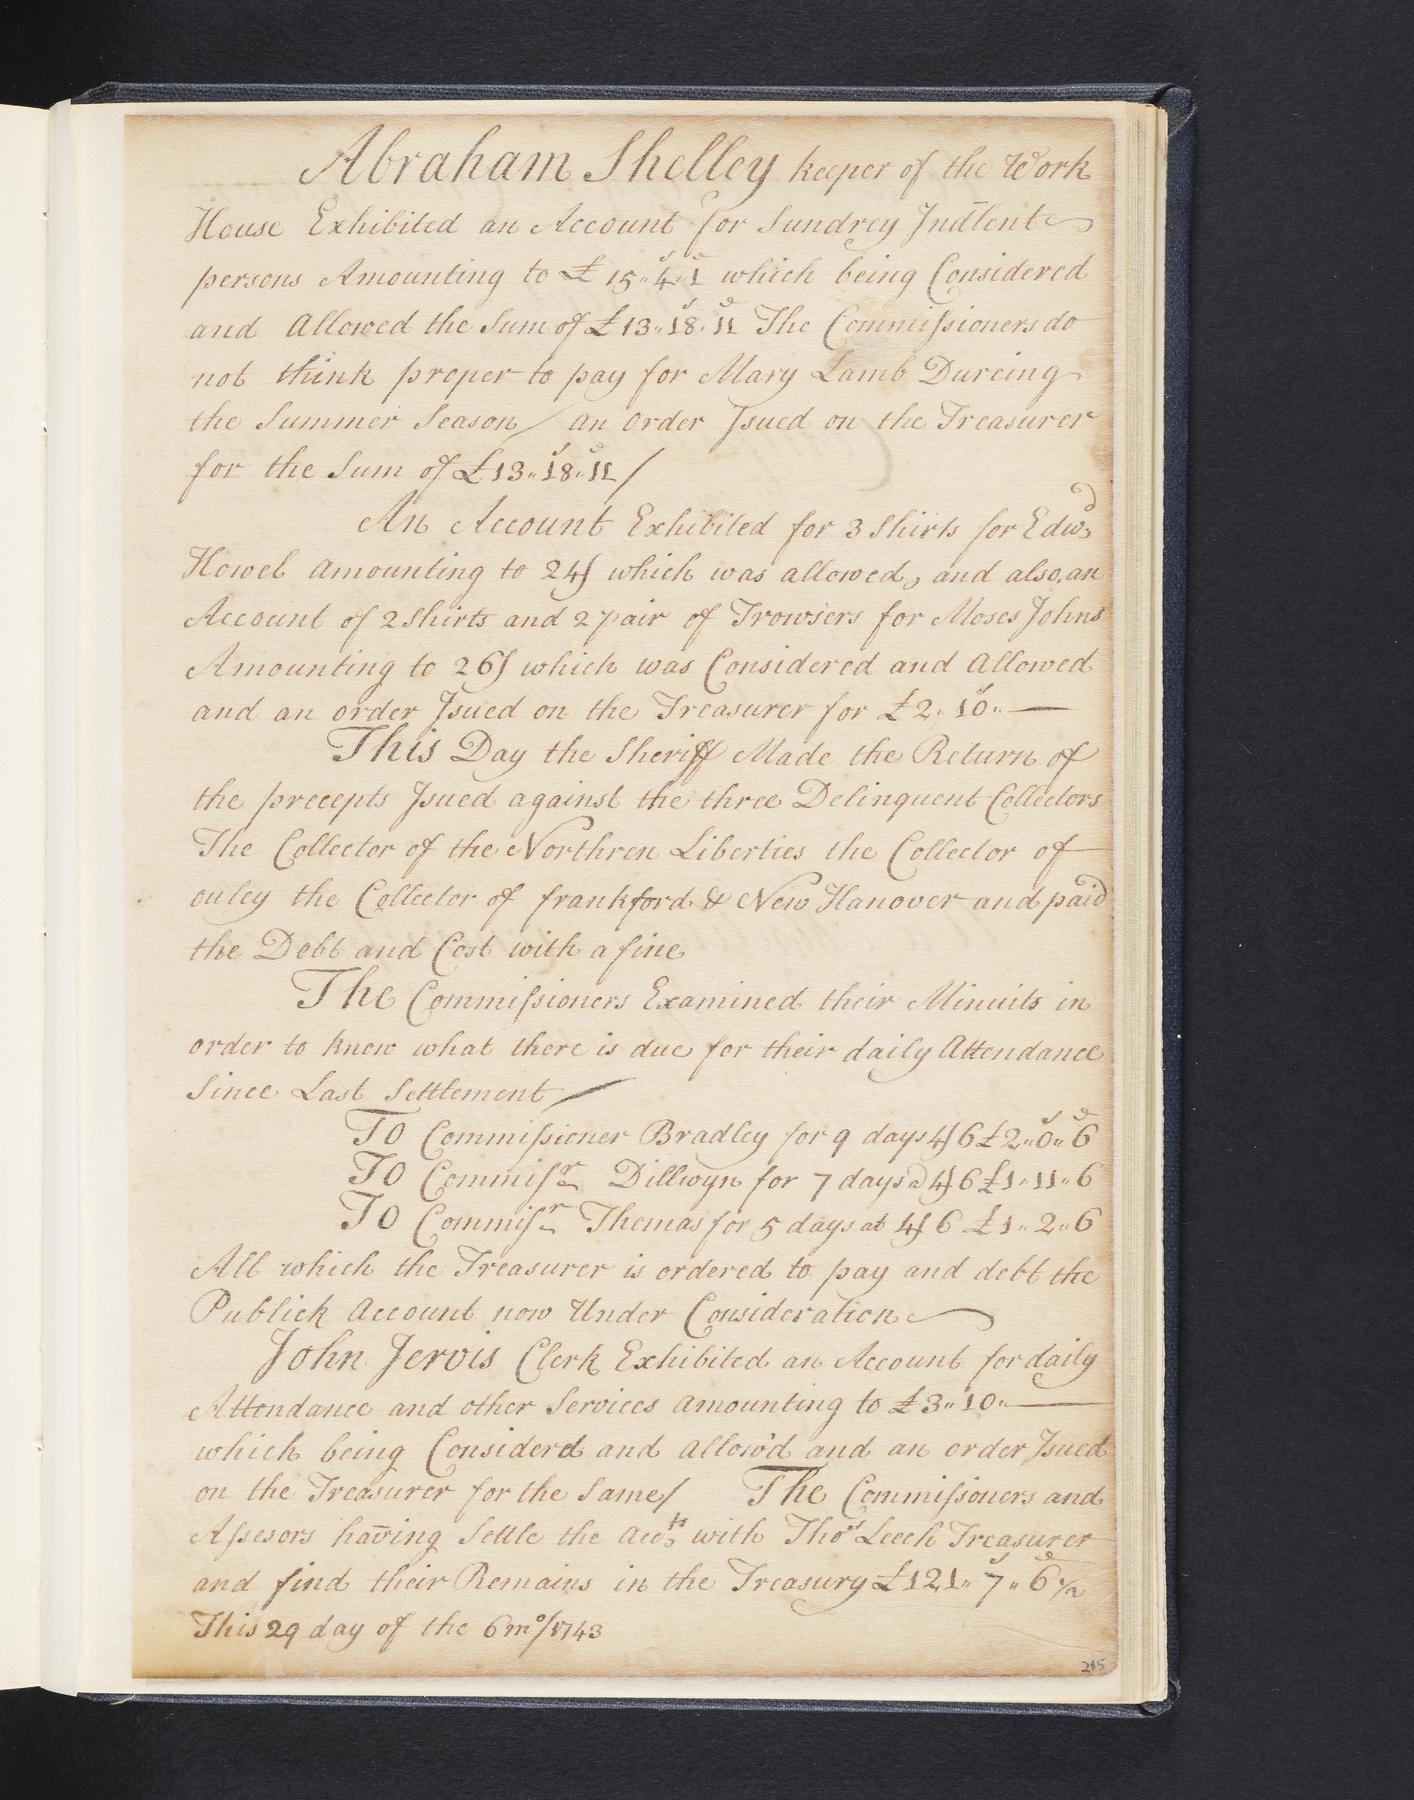 Abraham Shelley keeper of the Work
House Exhibited an Account for Sundrey Indlent
persons Amounting to £ 15„ 4s„ 1d which being Considered
and Allowed the Sum of £ 13„ 18s„ 11d The Commissioners do
not think proper to pay for Mary Lamb Dureing
the Summer Season / an order Jsued on the Treasurer
for the Sum of £ 13„ 18s„ 11d /
An Account Exhibited for 3 Shirts for Edwd
Howel amounting to 24/ which was allowed, and also, an
Account of 2 Shirts and 2 pair of Trowsers for Moses Johns
Amounting to 26/ which was Considered and Allowed
and an order Jsued on the Treasurer for £ 2„ 10s„ —
This Day the Sheriff Made the Return of
the precepts Jsued against the three Delinquent Collectors
The Collector of the Northren Liberties the Collector of
ouley the Collector of frankford & New Hanover and paid
the Debt and Cost with a fine
The Commissioners Examined their Minuits in
order to know what there is due for their daily Attendance
Since Last Settlement /
To Commissioner Bradley for 9 days 4/6 £2„ 0s„ 6d
To Commisr Dillwyn for 7 days @ 4/6 £1„ 11„ 6
To Commisr Thomas for 5 days at 4/6 £1„ 2„ 6
All which the Treasurer is ordered to pay and debt the
Publick Account now Under Consideration
John Jervis Clerk Exhibited an Account for daily
Attendance and other Services amounting to £3„ 10„ —
which being Considerd and allow'd and an order Jsued
on the Treasurer for the Same / The Commissioners and
Assesors having Settle the Accts with Thos Leech Treasurer
and find their Remains in the Treasury £121„ 7s„ 6d 1/2
This 29 day of the 6mo/1743
215